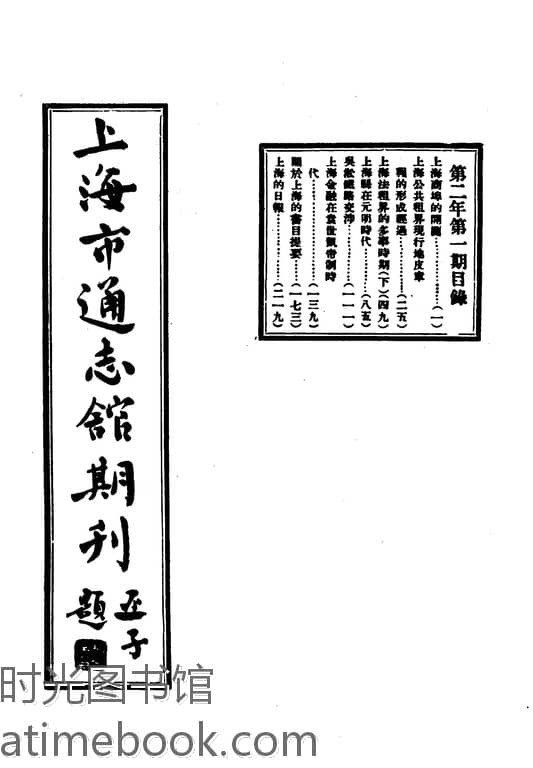 第二年第一期目錄
上海商埠的開闢…………(一)
上海公共租界現行地皮章
程的形成經過…………(二五)
上海法租界的多事時期(下)(四九)
上海縣在元明時代…………(八五)
吳淞鐵路交涉…………(一一一)
上海金融在袁世凱帝制時
代…………(一三九)
關於上海的書目提要…………(一七三)
上海的日報…………(二一九)
上海市通志館期刊
亚子
題
时光图书馆
atimebook.com